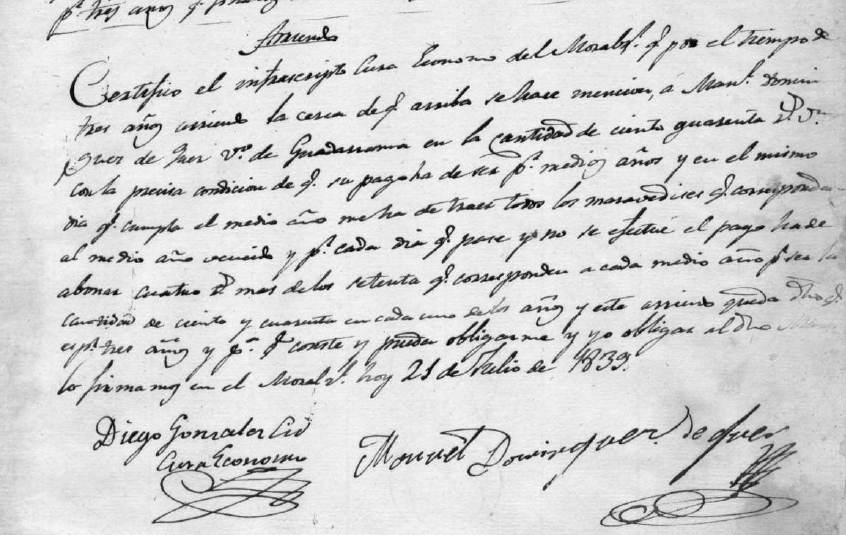 pr. tres años
Arriendo
Certifico el infrascripto Cura Economo del Moralqr. q. por el tiempo de
tres años arriendo la cerca de q. arriba se hace mencion, á Manl. Domin
guez de Quer vo. de Guadarrama en la cantidad de ciento quarenta rs. vn.
con la precisa condicion de q. su pago ha de ser pr. medios años y en el mismo
dia q. cumpla el medio año me ha de traer todos los maravedises q. corresponden
al medio año vencido y pr. cada dia q. pase y no se efectue el pago ha de
abonar cuatro rs. mas de los setenta q. corresponden a cada medio año pr. ser la
cantidad de ciento y cuarenta en cada uno de los años y este arriendo queda dho q.
es pr. tres años y pa. q. conste y pueda obligarme y yo obligar al dho
lo firmamos en el Moral hoy 21 de Julio de 1839.
Diego Gonzalez Cid
Cura Economo
Manuel Dominguez de Quer